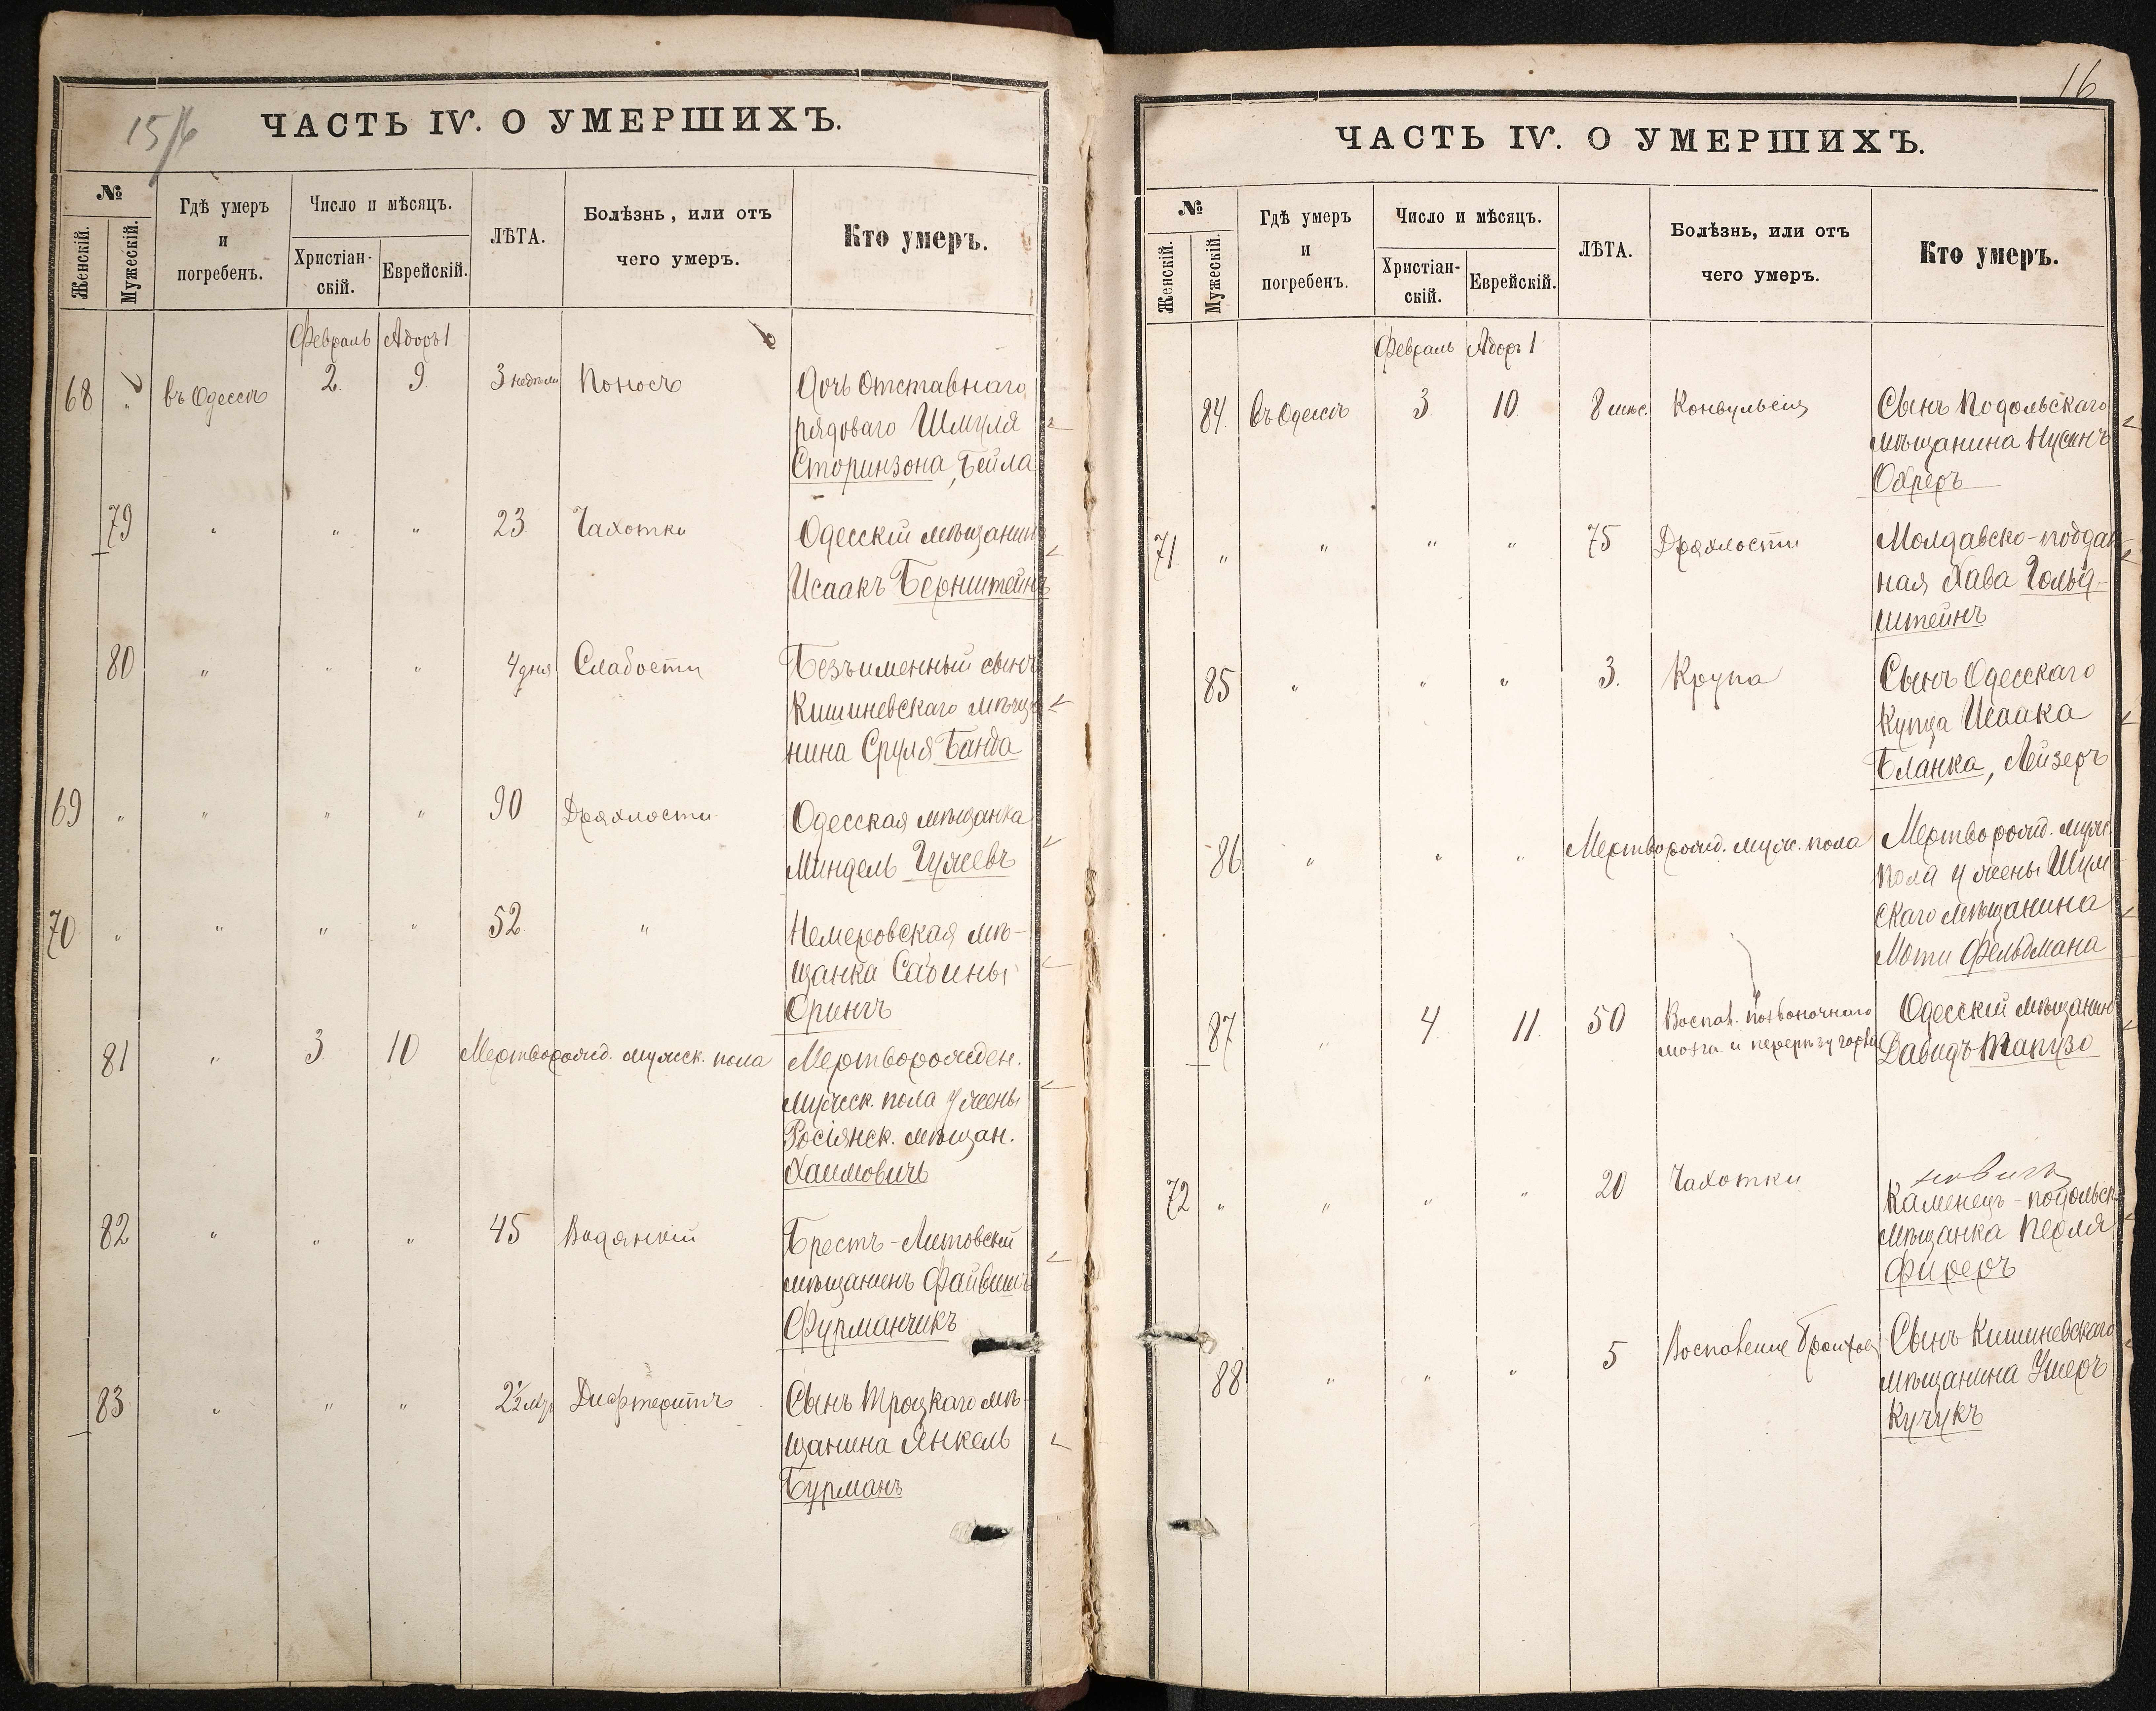 15/16
ЧАСТЬ IV. О УМЕРШИХЪ.
№
Женскій.
Мужескій.
Гдѣ умеръ
и
погребенъ.
Число и мѣсяцъ.
Христіан-
скій.
Еврейскій.
ЛѢТА.
Болѣзнь, или отъ
чего умеръ.
Кто умеръ.
Февраль Адоръ 1
68 " въ Одессѣ 2. 9. 3 недѣли Поносъ Дочь Отставнаго
рядоваго Шмуля
Сторинзона, Бейла
79 " " " 23. Чахотки Одесскій мѣщанинъ
Исаакъ Бернштейнъ
80 " " " 4 дня Слабости Безъименный сынъ
Кишиневскаго мѣща
нина Сруля Банда
69 " " " " 90 Дряхлости Одесская мѣщанка
Миндель
70 " " " " 52. " Немеровская мѣ-
щанка
Срингъ
81 " 3. 10 Мертворожд. мужск. пола Мертворожден.
мужск. пола у жены
Росіянск. мѣщан.
Хаимовичъ
82 " " " 45 Водянкій Брестъ-Литовскій
мѣщанинъ Файвишъ
Фурманчикъ
83 " " " 2½ Дифтеритъ Сынъ Троцкаго мѣ-
щанина Янкель
Бурманъ
16
ЧАСТЬ IV. О УМЕРШИХЪ.
№
Женскій.
Мужескій.
Гдѣ умеръ
и
погребенъ.
Число и мѣсяцъ.
Христіан-
скій.
Еврейскій.
ЛѢТА.
Болѣзнь, или отъ
чего умеръ.
Кто умеръ.
Февраль Адоръ 1
84. въ Одессѣ 3. 10. 8 мѣс. Конвульсія Сынъ Подольскаго
мѣщанина Нусинъ
Охреръ
71. " " " " 75 Дряхлости Молдавско-поддан-
ная Хава Гольд-
штейнъ
85 " " " 3. Крупа Сынъ Одесскаго
Купца Исаака
Бланка, Лейзеръ
86 " " " Мертворожд. муж. пола Мертворожд. муж.
пола у жены Шум
скаго мѣщанина
Моти Фельдмана
87 " 4. 11. 50 Воспал. позвоночнаго Одесскій мѣщанинъ
мозга и Давидъ Тапузо
72 " " " " 20 Чахотки Каменецъ-подольск.
мѣщанка Перля
Фиреръ
88 " " " 5 Воспаленіе Сынъ Кишиневскаго
мѣщанина Ушеръ
Кучукъ